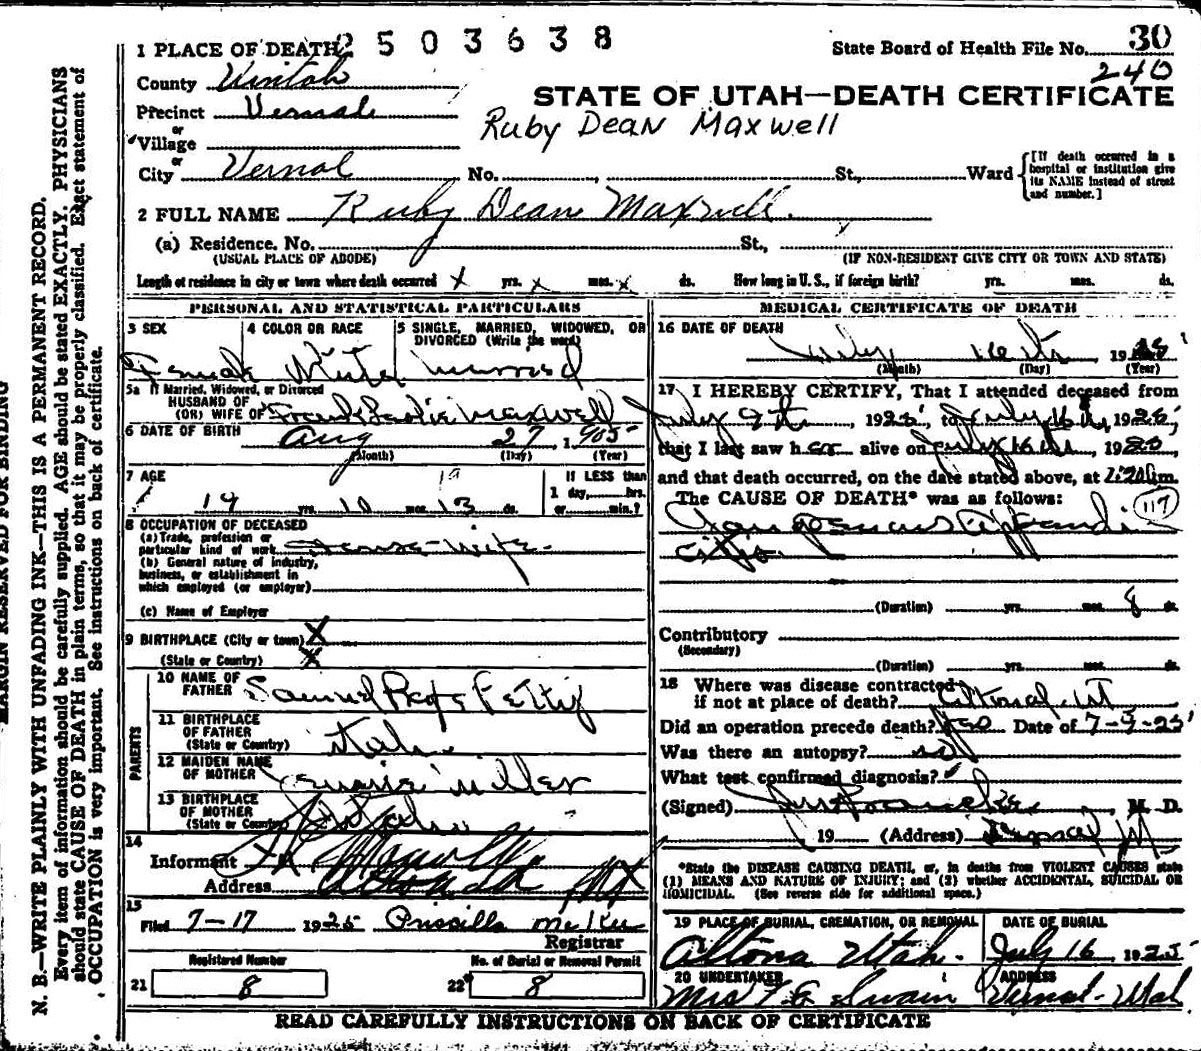 1 PLACE OF DEATH 2503638 State Board of Health File No. 30
County Uintah 240
Precinct Vernal STATE OF UTAH—DEATH CERTIFICATE
or
Village Ruby Dean Maxwell
or
City Vernal No. , St., Ward [If death occurred in a hospital or institution give its NAME instead of street and number.]
2 FULL NAME Ruby Dean Maxwell.
(a) Residence. No. St.,
(USUAL PLACE OF ABODE) (IF NON-RESIDENT GIVE CITY OR TOWN AND STATE)
Length of residence in city or town where death occurred x yrs. x mos. x ds. How long in U. S., if foreign birth? yrs. mos. ds.
PERSONAL AND STATISTICAL PARTICULARS
3 SEX 4 COLOR OR RACE 5 SINGLE, MARRIED, WIDOWED, OR
DIVORCED (Write the word)
Female White Married
5a If Married, Widowed, or Divorced
HUSBAND OF
(OR) WIFE OF Frank Leslie Maxwell
6 DATE OF BIRTH Aug 27 1905
(Month) (Day) (Year)
7 AGE 19 IF LESS than
1 day, hrs.
19 yrs. 10 mos. 13 ds. or min.?
8 OCCUPATION OF DECEASED
(a) Trade, profession or
particular kind of work House-wife
(b) General nature of industry,
business, or establishment in
which employed (or employer)
(c) Name of Employer
9 BIRTHPLACE (City or town) X
(State or Country) X
PARENTS
10 NAME OF
FATHER Samuel Pettij
11 BIRTHPLACE
OF FATHER
(State or Country) Utah.
12 MAIDEN NAME
OF MOTHER Miller
13 BIRTHPLACE
OF MOTHER
(State or Country) Utah
14
Informant
Address
15
Filed 7-17 1925 Priscilla McKee
Registrar
Registered Number No. of Burial or Removal Permit
21 8 22 8
MEDICAL CERTIFICATE OF DEATH
16 DATE OF DEATH
July 16th 1925
(Month) (Day) (Year)
17 I HEREBY CERTIFY, That I attended deceased from
July 9th, 1925, to July 16th, 1925,
that I last saw her alive on July 16th, 1925
and that death occurred, on the date stated above, at m.
The CAUSE OF DEATH* was as follows: 117
Gangrenous Appendi
citis
(Duration) yrs. mos. 8 ds.
Contributory
(Secondary)
(Duration) yrs. mos. ds.
18 Where was disease contracted
if not at place of death? Altonah, Ut
Did an operation precede death? Yes Date of 7-9-25
Was there an autopsy? no
What test confirmed diagnosis?
(Signed) M. D.
19 (Address) Vernal Ut
*State the DISEASE CAUSING DEATH, or, in deaths from VIOLENT CAUSES state
(1) MEANS AND NATURE OF INJURY; and (2) whether ACCIDENTAL, SUICIDAL OR
HOMICIDAL. (See reverse side for additional space.)
19 PLACE OF BURIAL, CREMATION, OR REMOVAL DATE OF BURIAL
Altona Utah. July 16 1925
20 UNDERTAKER ADDRESS
Mrs Swain Vernal-Utah
READ CAREFULLY INSTRUCTIONS ON BACK OF CERTIFICATE
MARGIN RESERVED FOR BINDING
N. B.—WRITE PLAINLY WITH UNFADING INK—THIS IS A PERMANENT RECORD.
Every item of information should be carefully supplied. AGE should be stated EXACTLY. PHYSICIANS
should state CAUSE OF DEATH in plain terms, so that it may be properly classified. Exact statement of
OCCUPATION is very important. See instructions on back of certificate.